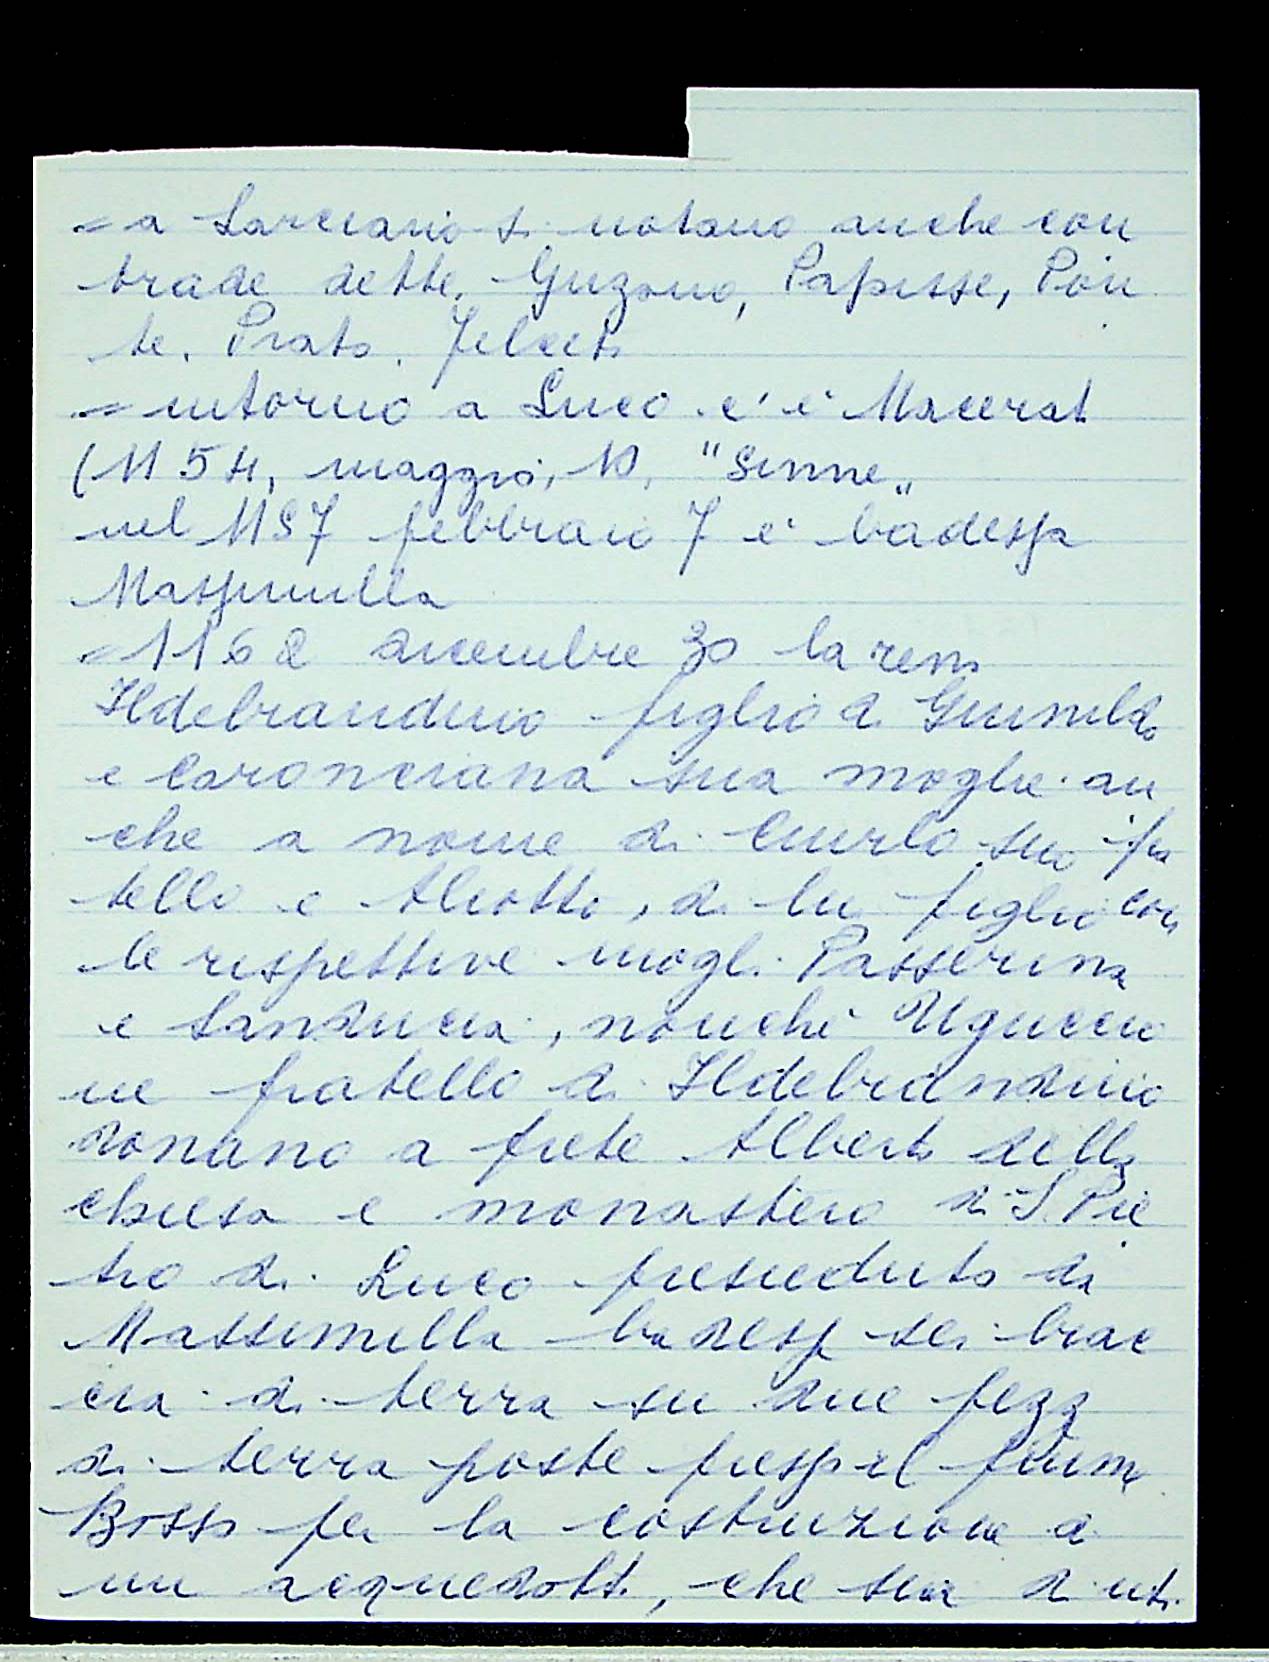 = a Larciano si notano anche con
trade dette, Guzano, Papisse, Pon
te. Prato.
= intorno a Luco c'è Macerat
(1154, maggio, 10, "Sinne"
nel 1157 febbraio 7 è badessa
Massimilla
= 1162 dicembre 30
Ildebrandino figlio di Guinildo
e Caronciana sua moglie an
che a nome di suo fra
tello e Aliotto, di lui figlio con
le rispettive mogli Passerina
e Sanducia, nonché Uguccio
ne fratello di Ildebrandino
donano a prete Alberto della
chiesa e monastero di S. Pie
tro di Luco presieduto da
Massimilla badessa sei brac
cia di terra su due pezz
di terra poste presso il fiume
Bosso per la costruzione di
un acquedott., che sia di uti